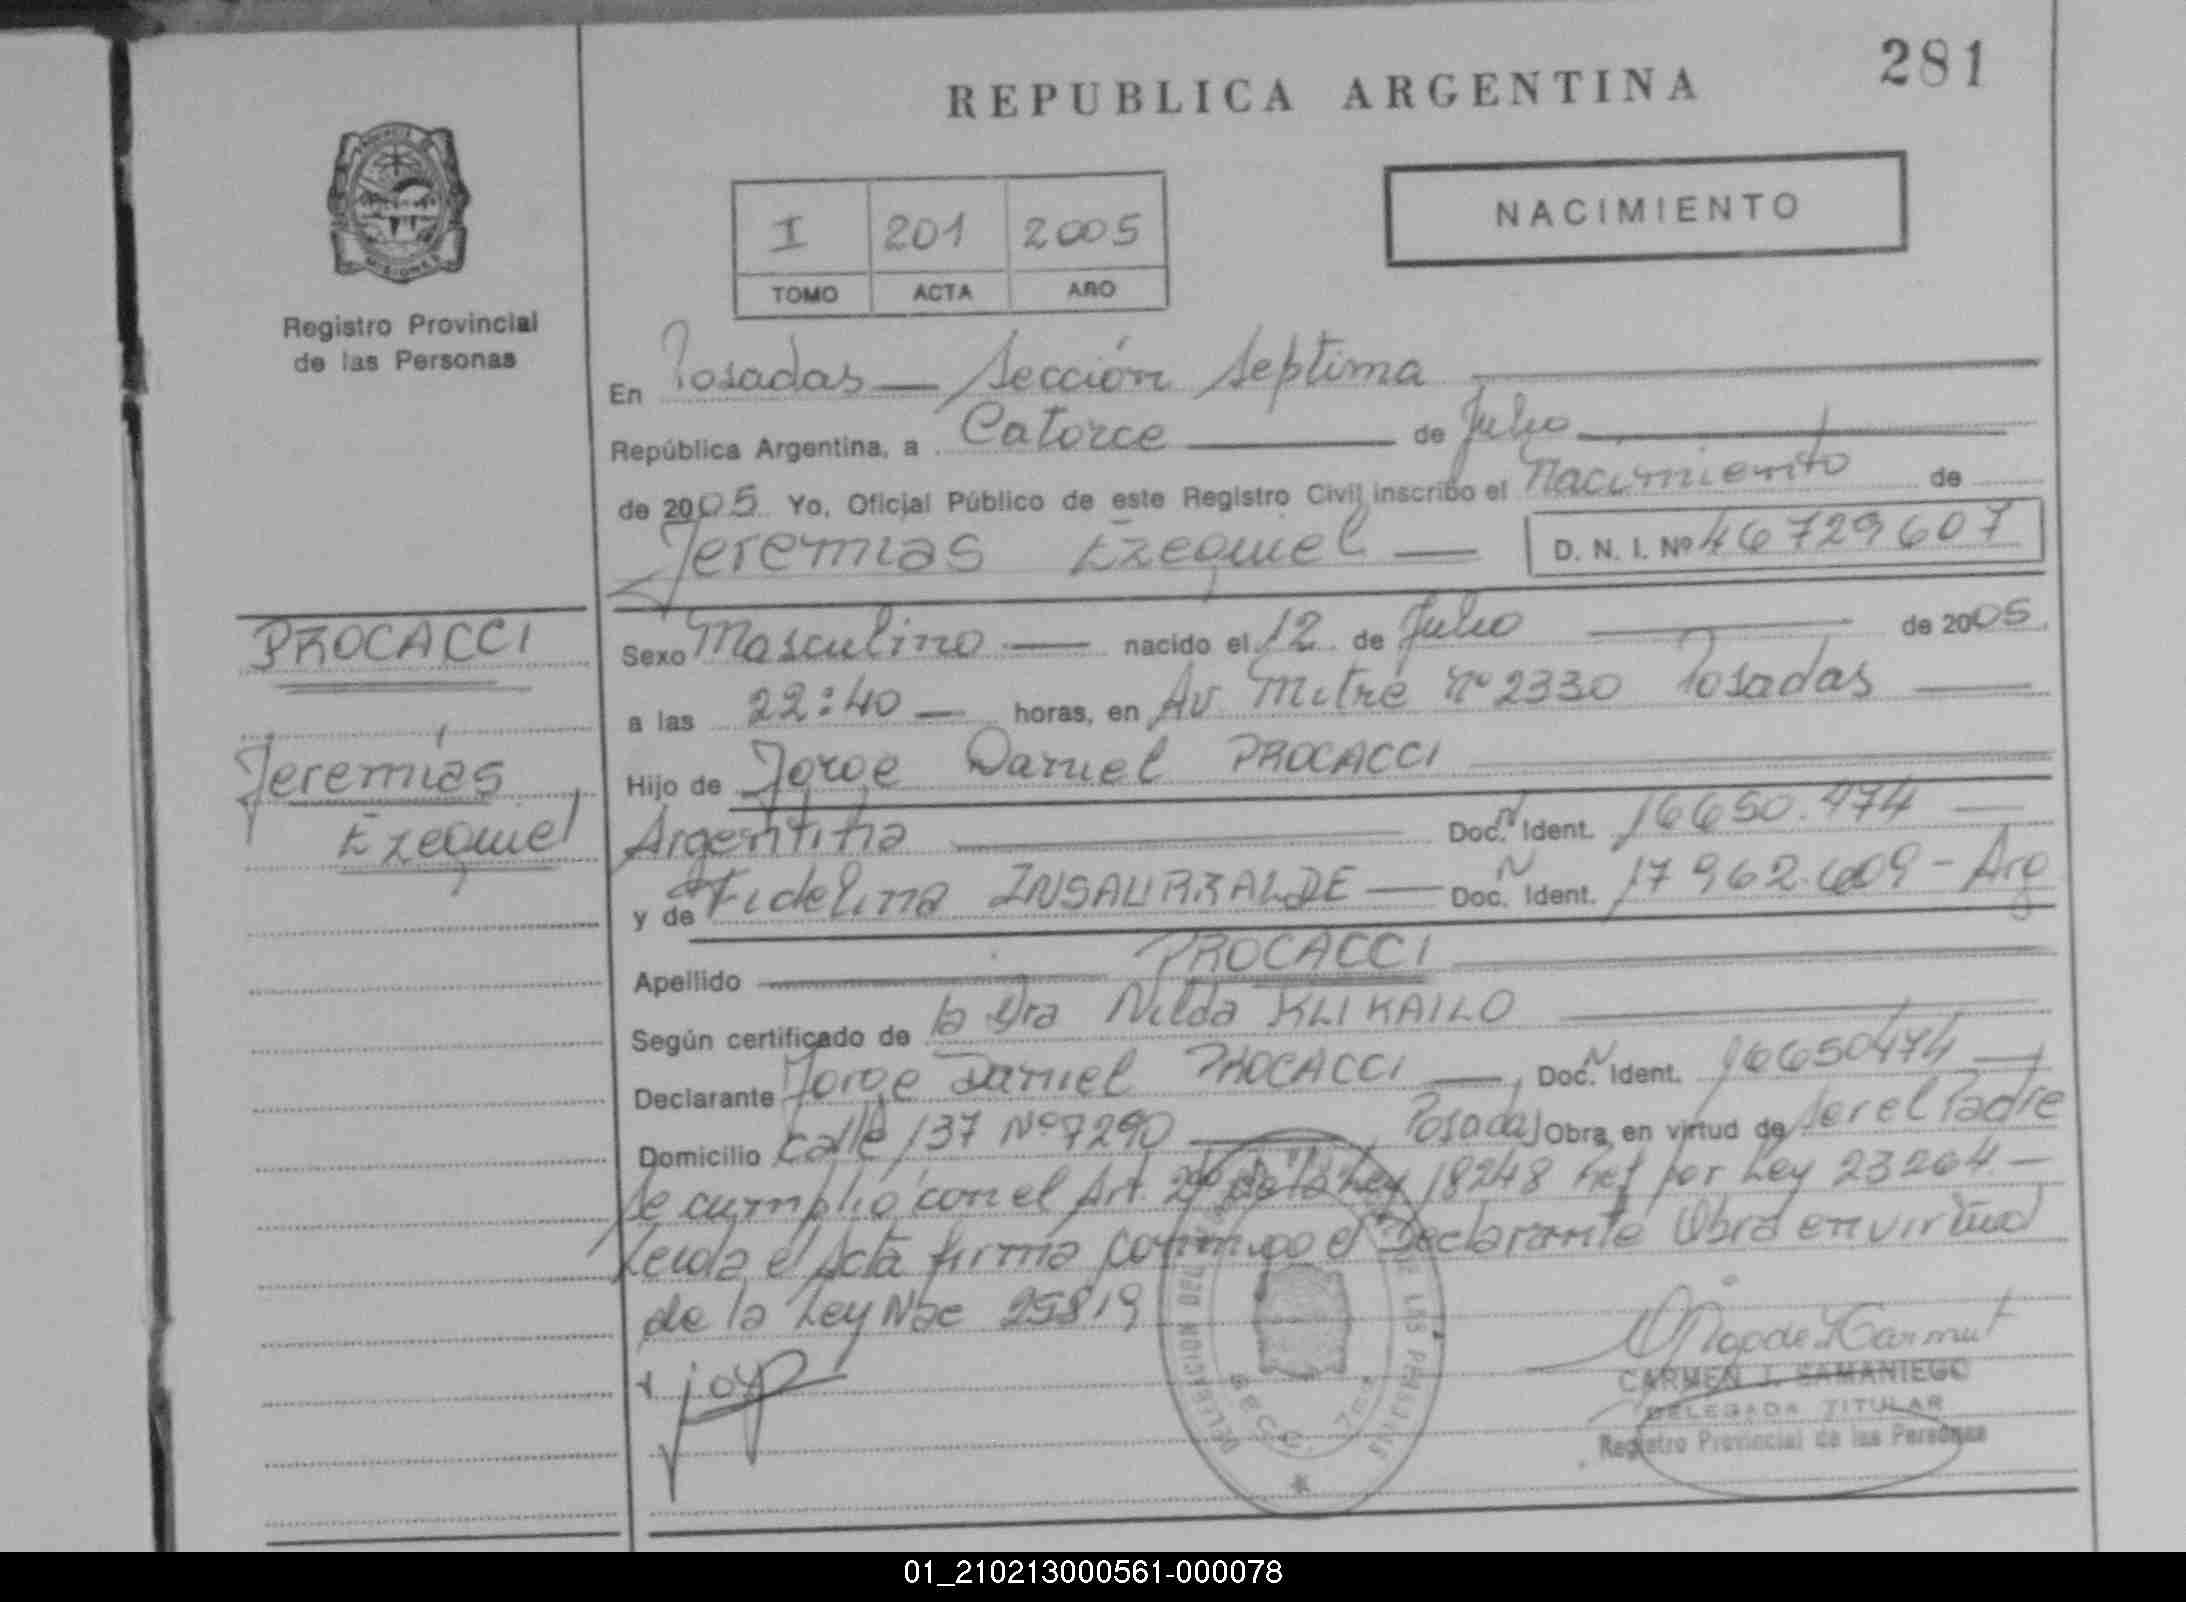 281
REPUBLICA ARGENTINA
NACIMIENTO
I 201 2005
TOMO ACTA AÑO
MISIONES
Registro Provincial
de las Personas
En Posadas — Sección Septima
República Argentina, a Catorce de Julio
de 2005 Yo, Oficial Público de este Registro Civil inscribo el Nacimiento de
Jeremías Ezequiel — D. N. I. Nº 46729607
PROCACCI
Jeremías
Ezequiel
Sexo Masculino — nacido el 12 de Julio de 2005
a las 22:40 — horas, en Av Mitre Nº 2330 Posadas —
Hijo de Jorge Daniel PROCACCI
Argentina Doc. Ident. 16650.474 —
y de Fidelina INSAURRALDE — Doc. Ident. 17962.609 - Arg
Apellido PROCACCI
Según certificado de la Dra Nilda KLIKAILO
Declarante Jorge Daniel PROCACCI —, Doc. Ident. 16650474 —
Domicilio Calle 137 Nº 7290 — Posadas Obra en virtud de ser el Padre
Se cumplió con el Art. 2º de la Ley 18248 Ref por Ley 23264 —
Leida el Acta firma conmigo el Declarante Obra en virtud
de la Ley Nac 25819
CARMEN J. SAMANIEGO
DELEGADA TITULAR
Registro Provincial de las Personas
01_210213000561-000078